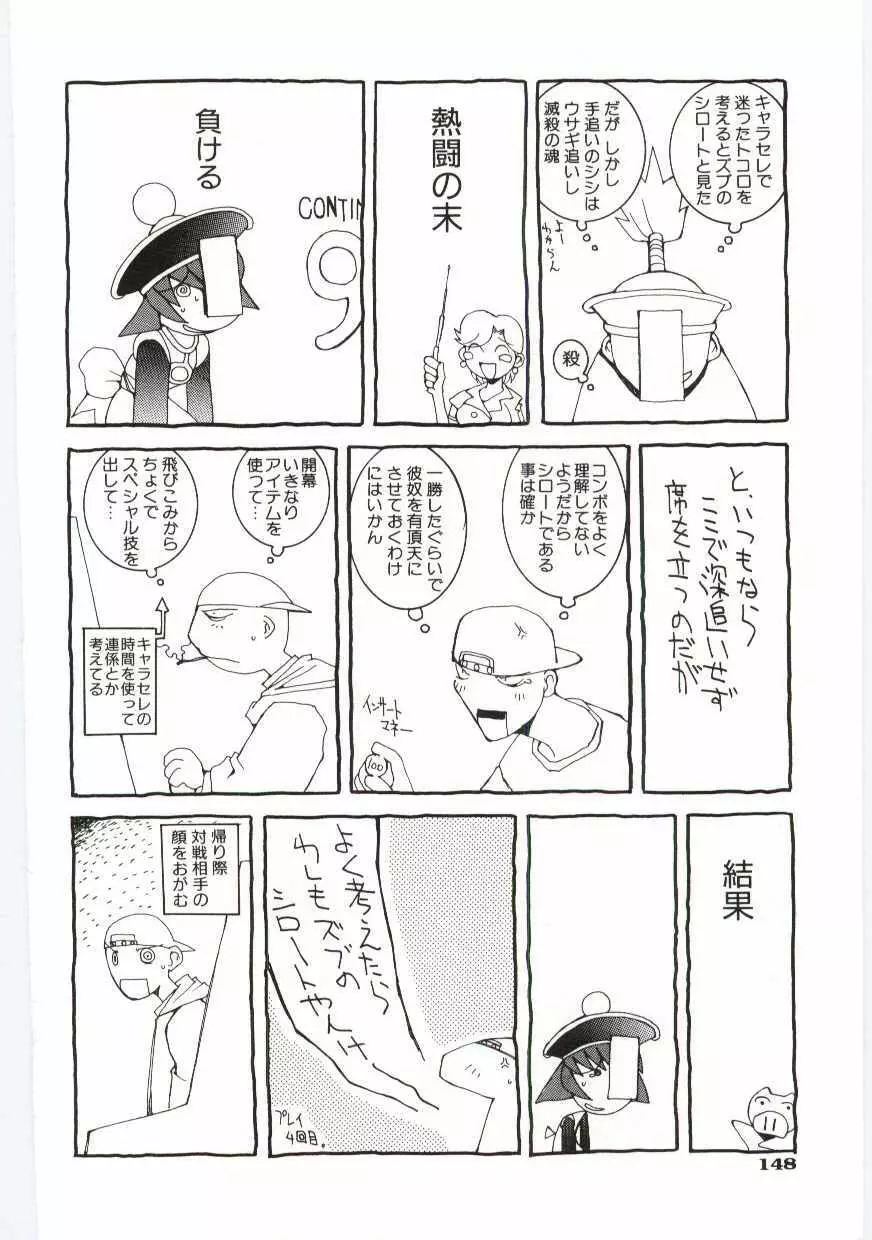 キャラセレで
迷ったトコロを
考えるとズブの
シロートと見た
だが しかし
手追いのシシは
ウサギ追いし
滅殺の魂
よー
わからん
殺
熱闘の末
負ける
CONTIN
9
と、いつもなら
ココで深追いせず
席を立つのだが
コンボをよく
理解してない
ようだから
シロートである
事は確か
一勝したぐらいで
彼奴を有頂天に
させておくわけ
にはいかん
インサート
マネー
100
開幕
いきなり
アイテムを
使って…
飛びこみから
ちょくで
スペシャル技を
出して…
キャラセレの
時間を使って
連係とか
考えてる
結果
よく考えたら
わしもズブの
シロートやんけ
プレイ
4回目。
帰り際
対戦相手の
顔をおがむ
148